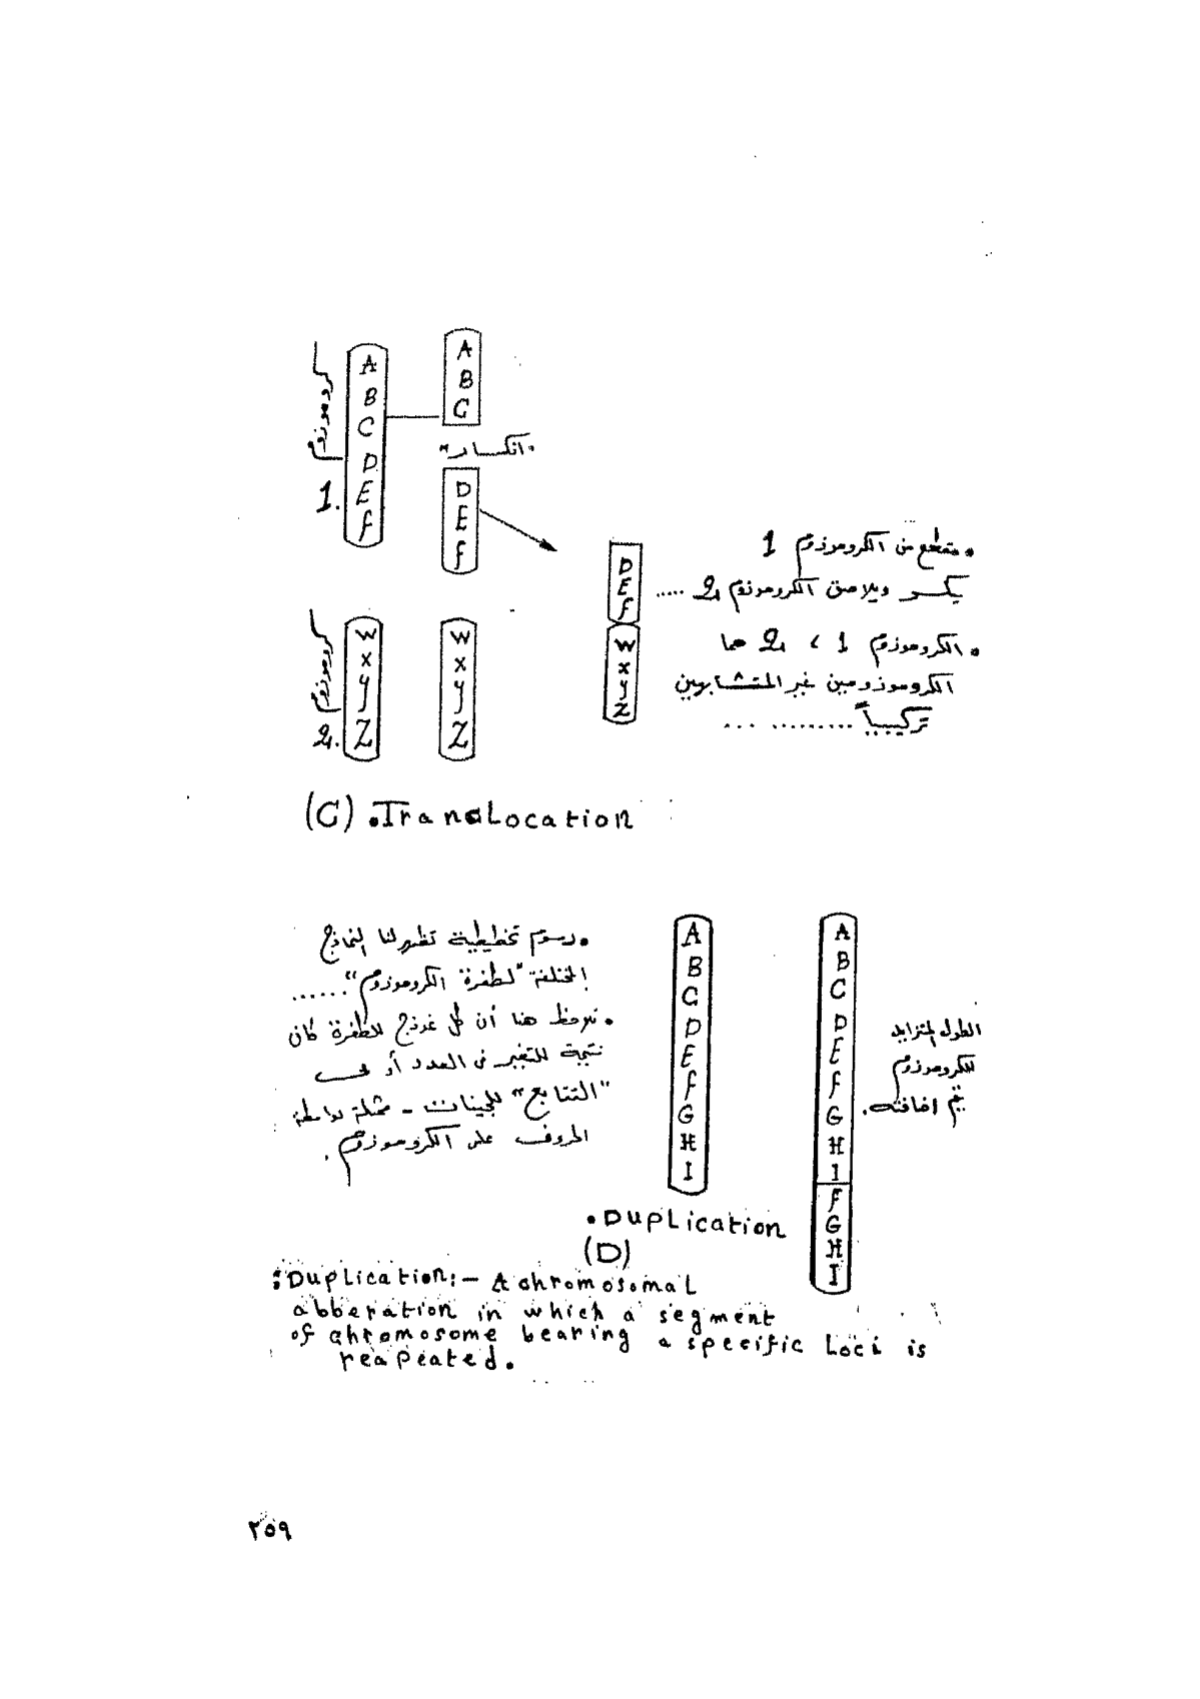 كروموزوم
1.
A
B
C
D
E
f
A
B
C
"انكسار"
D
E
f
D
E
f
W
x
y
Z
• مقطع من الكروموزوم 1
يكسر ويلاصق الكروموزوم 2 .....
• الكروموزوم 1 ، 2 هما
الكروموزومين غير المتشابهين
تركيبياً ......... ...
كروموزوم
2.
W
x
y
Z
W
x
y
Z
(C) .Translocation
• رسوم تخطيطية تظهر لنا النماذج
المختلفة "لطفرة الكروموزوم" ......
• نلاحظ هنا أن كل نموذج للطفرة كان
نتيجة للتغير فى العدد أو فى
"التتابع" للجينات - ممثلة بواسطة
الحروف على الكروموزوم .
A
B
C
D
E
f
G
H
I
A
B
C
D
E
f
G
H
I
f
G
H
I
الطول المتزايد
للكروموزوم
تم اضافته.
• Duplication
(D)
: Duplication:- A chromosomal
abberation in which a segment
of chromosome bearing a specific Loci is
reapeated.
٢٥٩